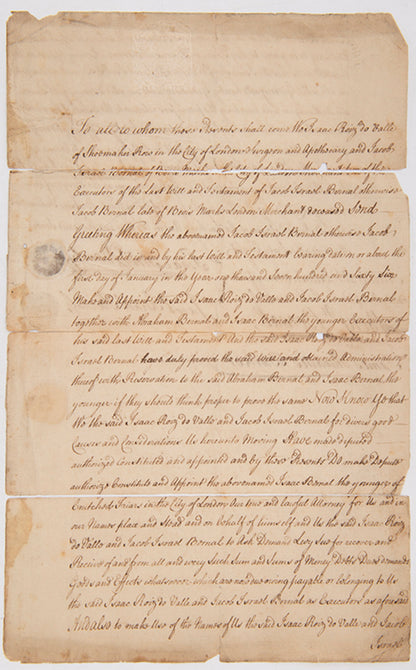 To all to whom these Presents shall come We Isaac Roiz do Valle
of Shoemaker Row in the City of London Surgeon and Apothecary and Jacob
Israel Bernal of Bevis Marks City of London Merchant two of the
Executors of the Last Will and Testament of Jacob Israel Bernal otherwise
Jacob Bernal late of Bevis Marks London Merchant deceased Send
Greeting Whereas the abovenamed Jacob Israel Bernal otherwise Jacob
Bernal did in and by his last will and Testament bearing date on or about the
first day of January in the Year one thousand seven hundred and Sixty Six
Make and Appoint the said Isaac Roiz do Valle and Jacob Israel Bernal
together with Abraham Bernal and Isaac Bernal the younger Executors of
his said last Will and Testament And the said Isaac Roiz do Valle and Jacob
Israel Bernal have duly proved the said Will and obtained Administration
thereof with Reservation to the said Abraham Bernal and Isaac Bernal the
younger if they should think proper to prove the same Now Know Ye that
We the said Isaac Roiz do Valle and Jacob Israel Bernal for divers good
Causes and Considerations Us hereunto Moving Have made deputed
authorized Constituted and appointed and by these Presents Do make Depute
authorize Constitute and Appoint the abovenamed Isaac Bernal the younger of
Crutched Friars in the City of London Our true and lawful Attorney for Us and in
our Names place and Stead and on behalf of himself and Us the said Isaac Roiz
do Valle and Jacob Israel Bernal to Ask Demand Levy Sue for recover and
Receive of and from all and every Such Sum and Sums of Money Debts Dues demands
Goods and Effects whatsoever which are now due owing payable or belonging to Us
the said Isaac Roiz do Valle and Jacob Israel Bernal as Executors as aforesaid
And also to make Use of the Names of Us the said Isaac Roiz do Valle and Jacob
Israel